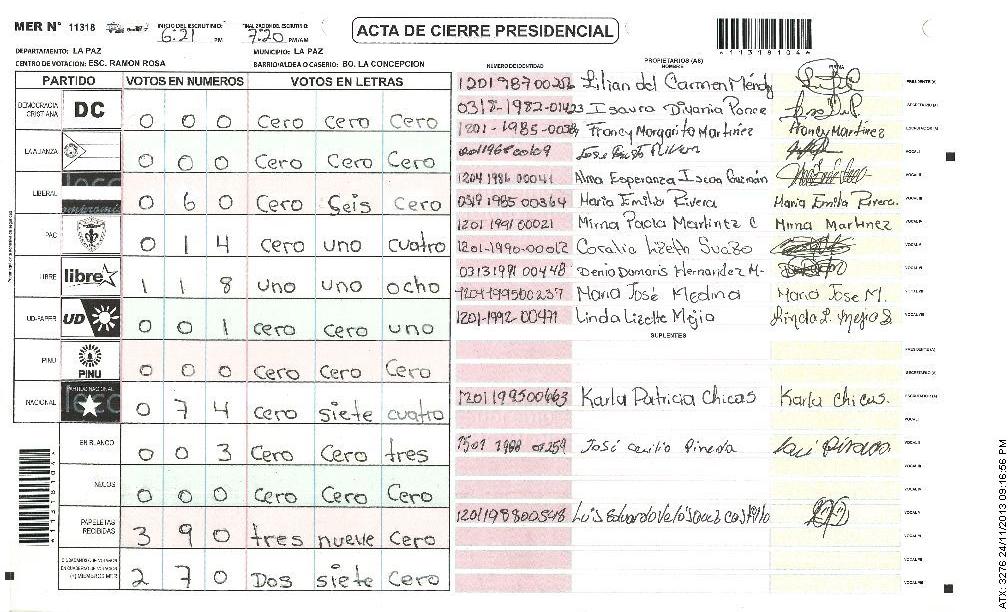 MER N° 11318 INICIO DEL ESCRUTINIO: 6:21 PM FINALIZACION DEL ESCRUTINIO: 7:20 PM/AM
ACTA DE CIERRE PRESIDENCIAL
DEPARTAMENTO: LA PAZ MUNICIPIO: LA PAZ
CENTRO DE VOTACIÓN: ESC. RAMON ROSA BARRIO/ALDEA O CASERIO: BO. LA CONCEPCION
PARTIDO VOTOS EN NUMEROS VOTOS EN LETRAS
DEMOCRACIA CRISTIANA DC 0 0 0 Cero Cero Cero
LA ALIANZA 0 0 0 Cero Cero Cero
LIBERAL 0 6 0 Cero Seis Cero
PAC 0 1 4 cero uno cuatro
LIBRE libre 1 1 8 uno uno ocho
UD-FAPER UD 0 0 1 cero cero uno
PINU PINU 0 0 0 Cero Cero Cero
NACIONAL PARTIDO NACIONAL 0 7 4 Cero siete cuatro
EN BLANCO 0 0 3 Cero Cero tres
NULOS 0 0 0 Cero Cero Cero
PAPELETAS RECIBIDAS 3 9 0 tres nueve Cero
2 7 0 Dos siete Cero
NUMERO DE IDENTIDAD PROPIETARIOS (AS) NOMBRE FIRMA
Lilian del Carmen PRESIDENTE(A)
0318-1982-01423 Isaura Divania Ponce SECRETARIO(A)
Francy Margarita Martinez Francy Martinez ESCRUTADOR(A)
VOCAL I
1204 1986 00041 Alma Esperanza Iscoa Guzmán VOCAL II
0319 1985 00364 Maria Emilia Rivera Maria Emilia Rivera. VOCAL III
1201 1991 00021 Mirna Paola Martinez C Mirna Martinez VOCAL IV
1201-1990-00012 Coralia Lizeth Suazo VOCAL V
0313 1991 00448 Denia Damaris Hernandez M- VOCAL VI
1204199500237 Maria José Medina Maria Jose M. VOCAL VII
1201-1992-00471 Linda Lizette Mejia Linda L. Mejia S. VOCAL VIII
SUPLENTES
PRESIDENTE(A)
SECRETARIO(A)
1201199500663 Karla Patricia Chicas Karla Chicas. ESCRUTADOR(A)
VOCAL I
1501 1988 01259 José cecilio Pineda VOCAL II
VOCAL III
VOCAL IV
1201198800548 Luis Eduardo Velasquez castillo VOCAL V
VOCAL VI
VOCAL VII
VOCAL VIII
A11318104
ATX: 3276 24/11/2013 09:16:56 PM